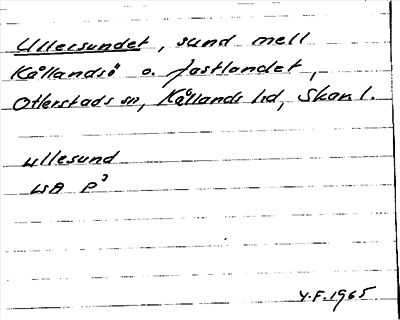 Ullersundet, sund mell
Kållandsö o. fastlandet,
Otterstads sn, Kållands hd, Skan l.
ullesund
LSA P³
Y.F. 1965